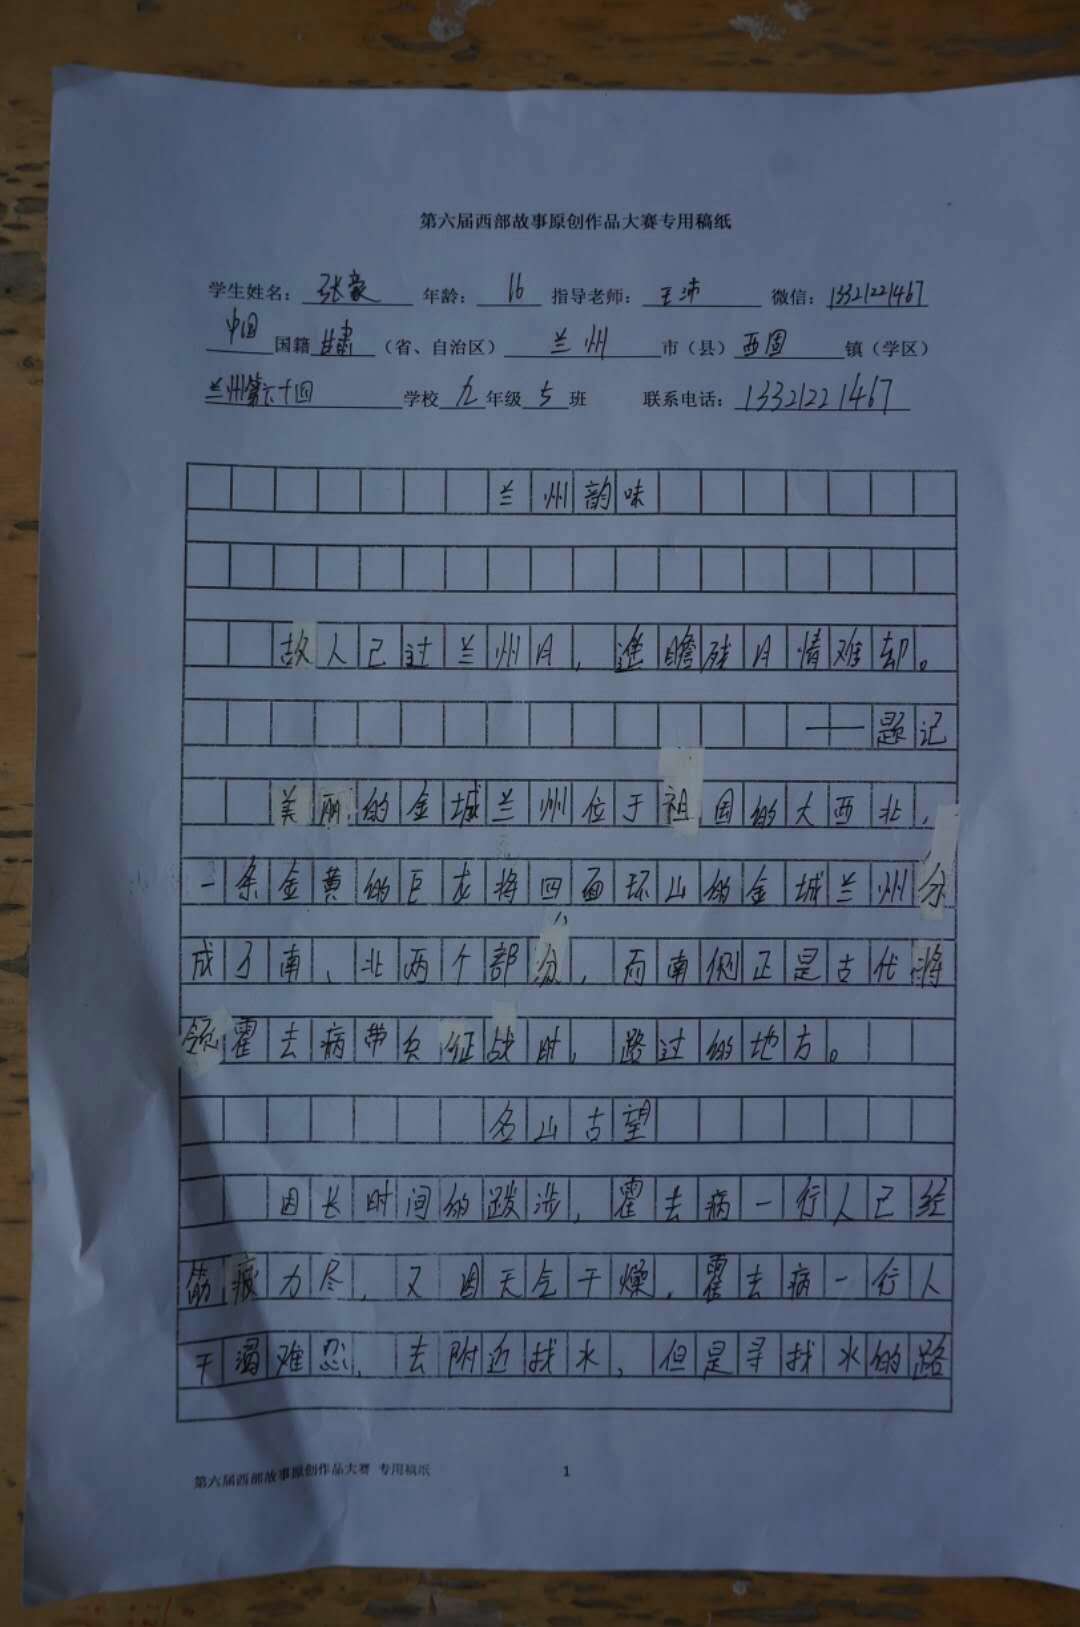 第六届西部故事原创作品大赛专用稿纸
学生姓名：张豪 年龄：16 指导老师：王沛 微信：13321221467
中国 国籍 甘肃（省、自治区） 兰州 市（县）西固 镇（学区）
兰州第六十四 学校 九 年级 5 班 联系电话：13321221467
兰州韵味
故人已过兰州月，进瞻残月情难却。
——题记
美丽的金城兰州位于祖国的大西北，
一条金黄的巨龙将四面环山的金城兰州分
成了南、北两个部分，而南侧正是古代将
领霍去病带负征战时，路过的地方。
名山古望
因长时间的跋涉，霍去病一行人已经
筋疲力尽，又因天气干燥，霍去病一行人
干渴难忍，去附近找水，但是寻找水的路
第六届西部故事原创作品大赛 专用稿纸 1